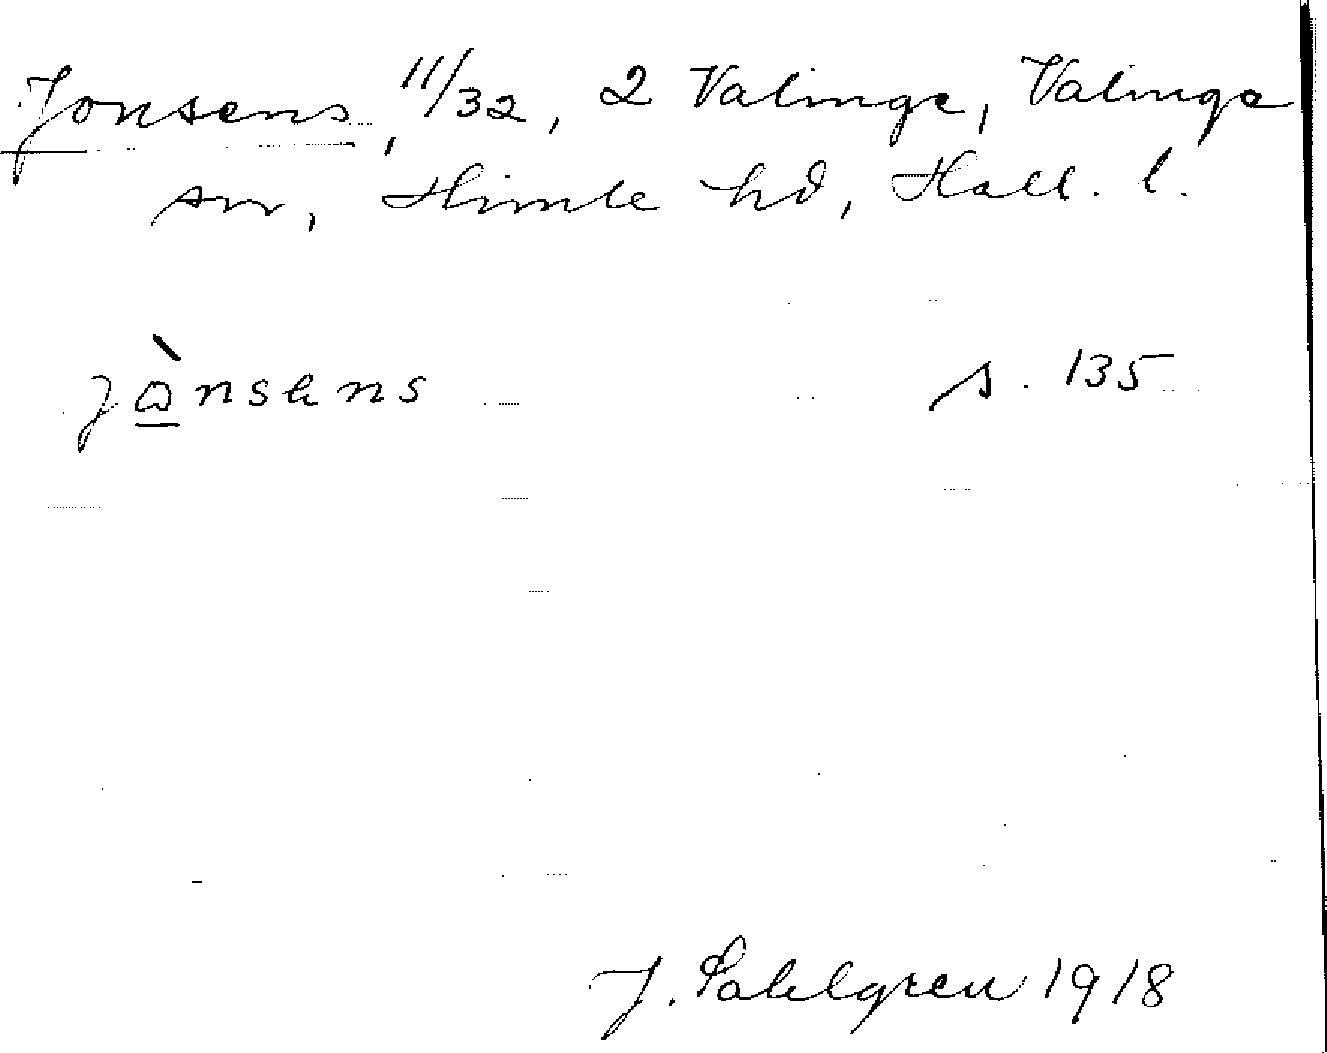 Jonsens, 11/32, 2 Valinge, Valinge
sn, Himle hd, Hall. l.
jὼnsens s. 135
J. Sahlgren 1918